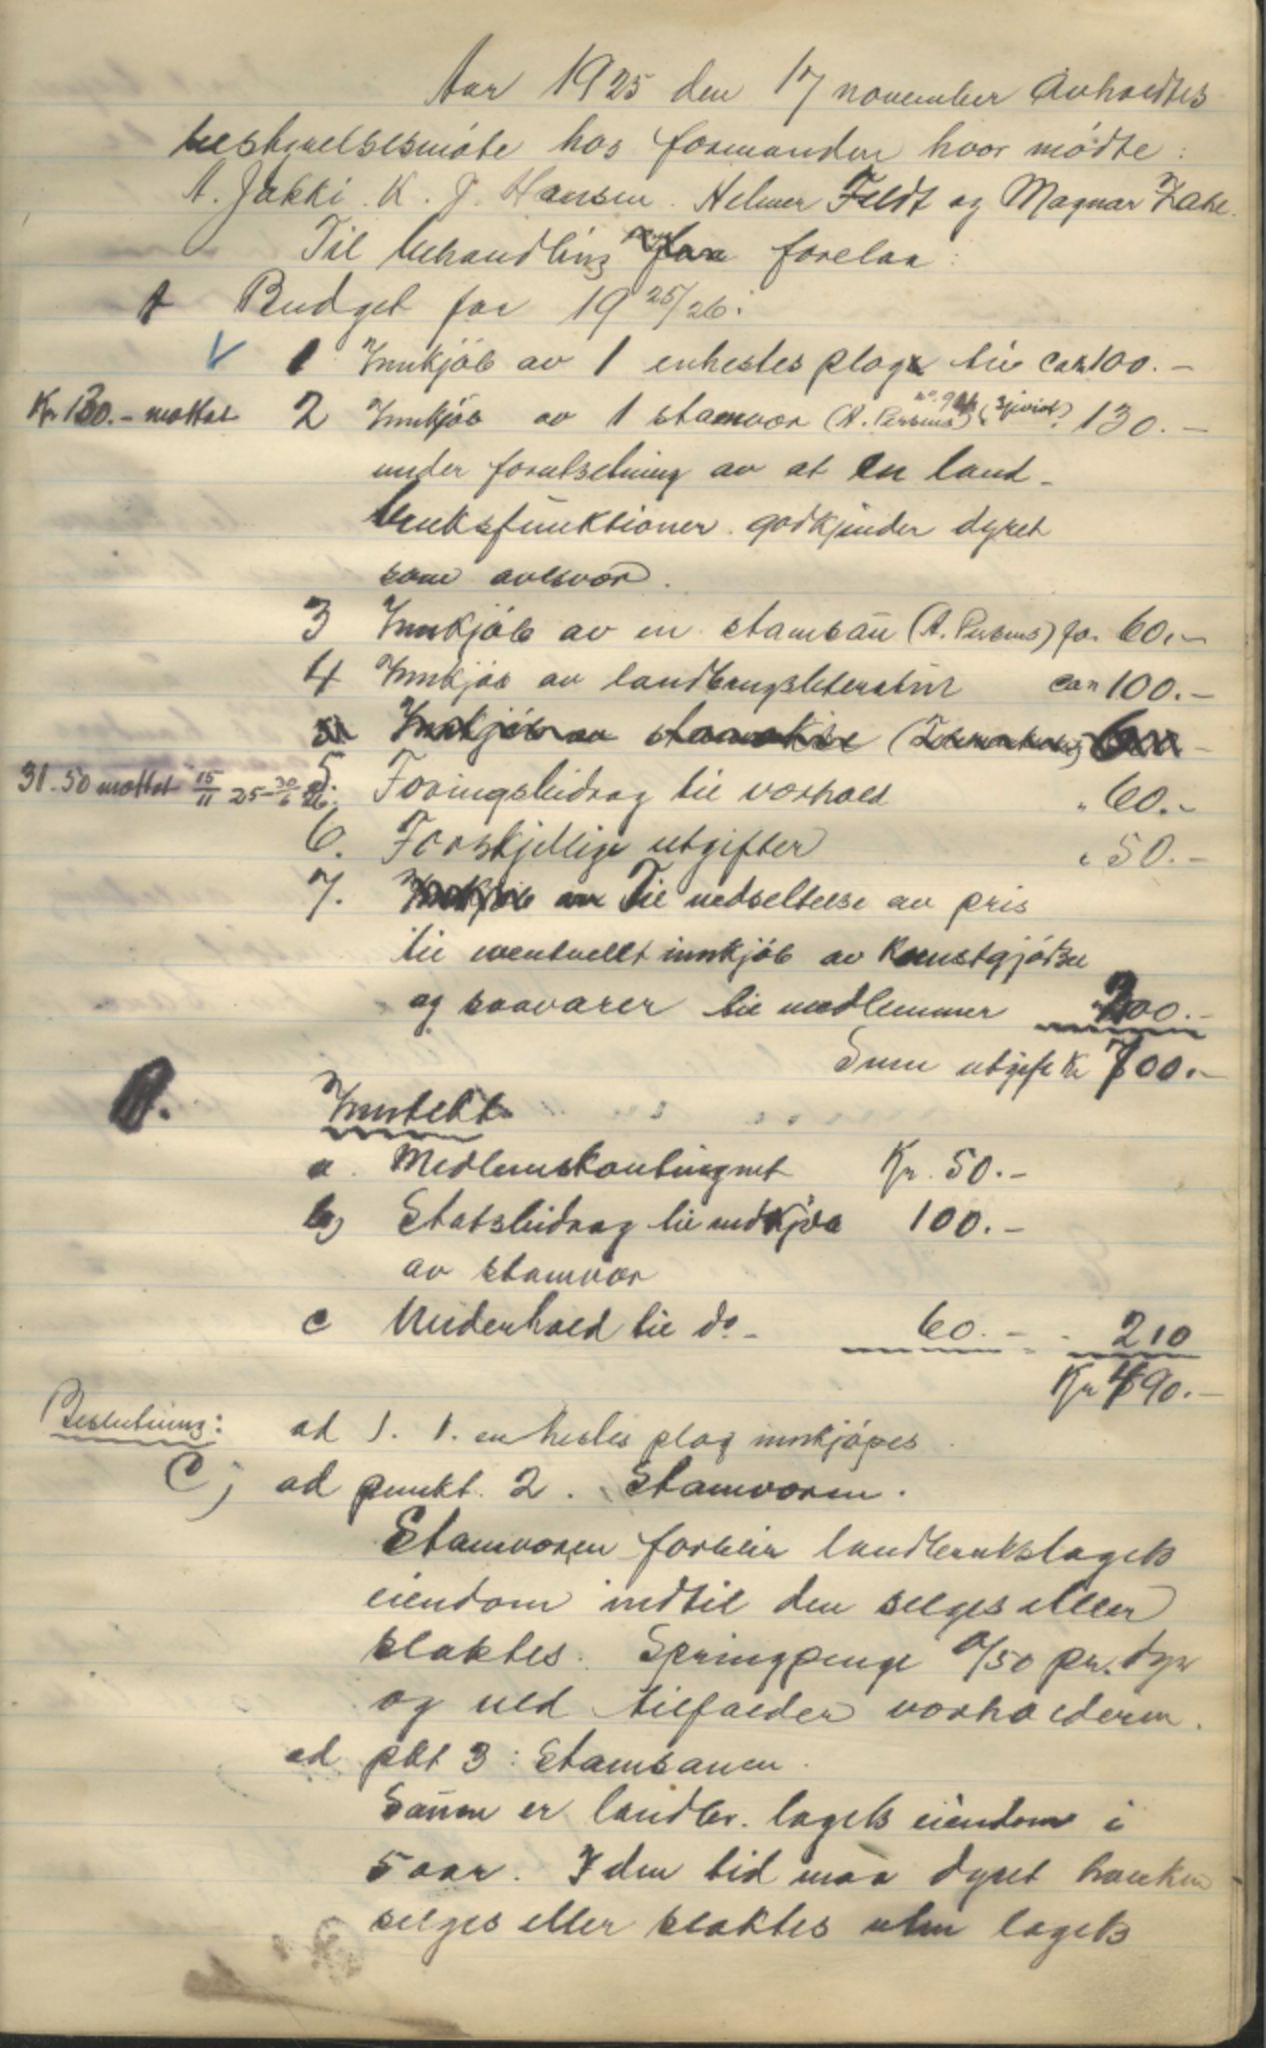 Aar 1925 den 17 november avholdtes
bestyrelsesmøte hos formanden hvor mødte:
A. Jakki. K. J. Hansen. Helmer Feldt og Magnar Zahl.
Til behandling forelaa:
A Budget for 19 25/26:
V 1 Innkjöb av 1 enhestes plog til ca 100.-
Kr 130.- mottat 2 Innkjöb av 1 stamvær (A. Persens) 130.-
under forutsetning av at en land-
bruksfunktioner godkjender dyret
som avlsvær.
3 Innkjöb av en stamsau (A. Persens) for 60.-
4 Innkjöb av landbrugsliteratur ca 100.-
Innkjöb av
31.50 mottat 15/11 25-30/6 26. 5. Foringsbidrag til værhold " 60.-
6. Forskjellige utgifter " 50.-
7. Til nedsettelse av pris
til eventuellt innkjöb av kunstgjödsel
og saavarer til medlemmer 200.-
Sum utgift Kr 700.-
B. Inntekt
a. Medlemskontingent Kr. 50.-
b) Statsbidrag til indkjöb 100.-
av stamvær
c Underhold til do- 60.- - 210
Kr 490.-
Beslutning: ad 1. 1. enhestes plog innkjöpes.
C) ad punkt. 2. Stamværen.
Stamværen forblir landbrukslagets
eiendom indtil den selges eller
slaktes. Springpenge 0/50 pr. dyr
og uld tilfalder værholderen.
ad pkt 3: Stamsauen.
Sauen er landbr. lagets eiendom i
5 aar. I den tid maa dyret hverken
selges eller slaktes uten lagets